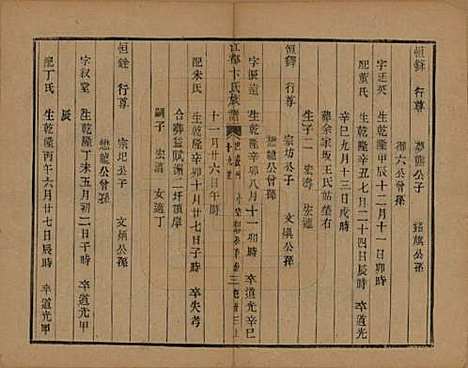 恒銤 行尊 夢熊公子 銘旗公孫
御六公曾孫
字廷英 生乾隆甲辰十二月十一日卯時
配董氏 生乾隆辛丑七月二十四日辰時
辛巳九月十三日戌時
葬余家坂王氏塋左
生子二 宏濤 宏連
恒鐸 行尊 宗坊公子 文煥公孫
懋龍公曾孫
字振遠 生乾隆辛卯八月十一日卯時 卒道光辛巳
江都卞氏族譜
十一月廿六日午時
配朱氏 生乾隆辛卯十月廿七日子時 卒失考
合葬蕪賦洲二圩頭岸
嗣子 宏清 女適丁
恒銓 行尊 宗圯公子 文煥公孫
懋龍公曾孫
字叔堂 生乾隆丁未五月初二日子時 卒道光甲
辰
配丁氏 生乾隆丙午六月廿七日辰時 卒道光甲